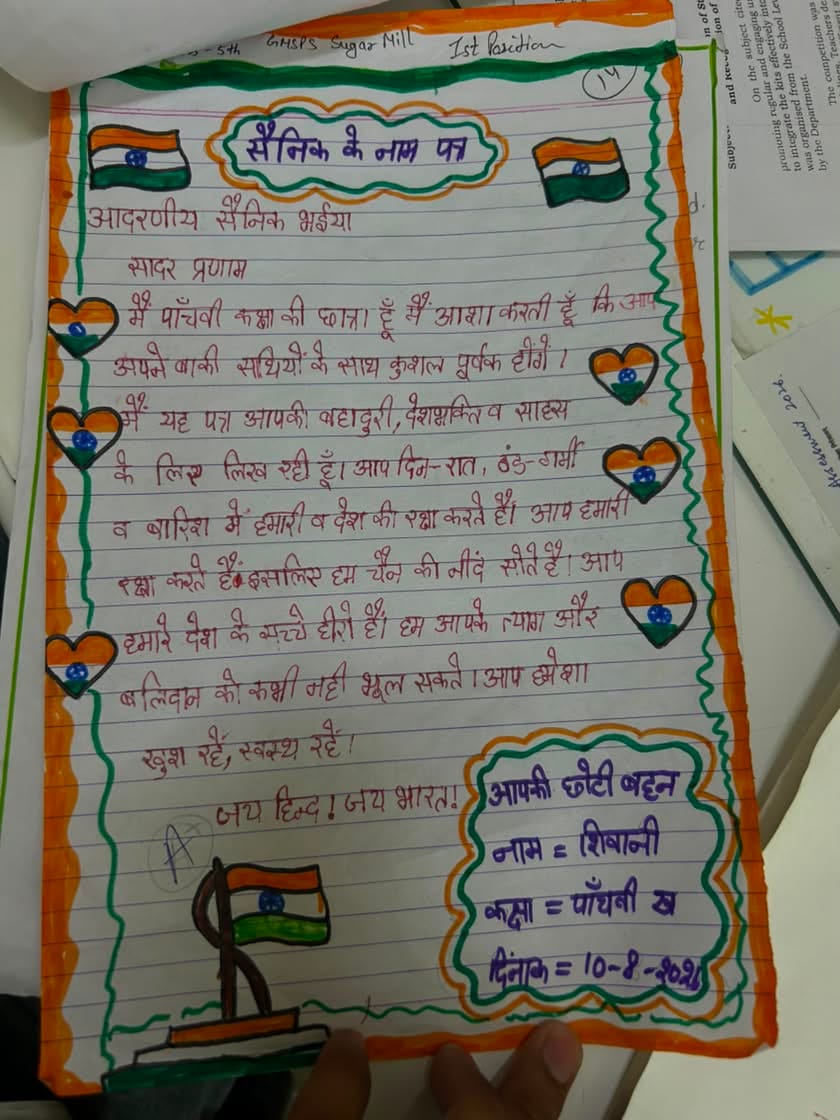 5th GMSPS Sugar Mill Ist Position
14
सैनिक के नाम पत्र
आदरणीय सैनिक भईया
सादर प्रणाम
मैं पाँचवी कक्षा की छात्रा हूँ मैं आशा करती हूँ कि आप
अपने बाकी साथियों के साथ कुशल पूर्वक होंगे।
मैं यह पत्र आपकी बहादुरी, देशभक्ति व साहस
के लिए लिख रही हूँ। आप दिन-रात, ठंड-गर्मी
व बारिश में हमारी व देश की रक्षा करते हैं। आप हमारी
रक्षा करते हैं इसलिए हम चैन की नींदं सोते है। आप
हमारे देश के सच्चे हीरो हैं। हम आपके त्याग और
बलिदान को कभी नही भूल सकते। आप हमेशा
खुश रहें, स्वस्थ रहें।
जय हिन्द! जय भारत!
A+
आपकी छोटी बहन
नाम = शिवानी
कक्षा = पाँचवी ख
दिंनाक = 10-8-2026
and Recog
On the subject cite
promoting regular and engaging u
to integrate from the School Lev
was organised from
by the Department.
The competition was